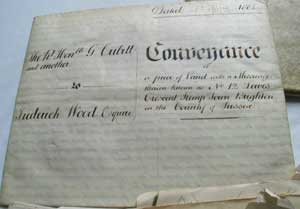 Dated 1885
The Rt. Honble G. Cubitt
and another
to
Frederick Wood Esquire
Conveyance
of
a piece of Land with a Messuage
thereon known as No 12 Lewes
Crescent Kemp Town Brighton
in the County of Sussex